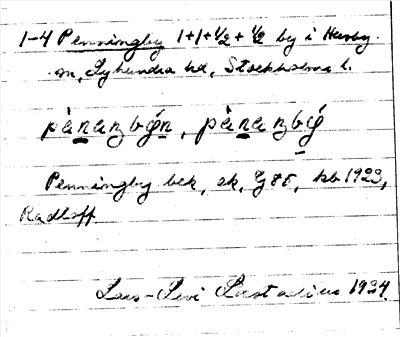 1-4 Penningby 1+1+½+½ by i Husby.
sn, Lyhundra hd, Stockholms l.
pènanzbýn, pènanzbý
Penningby bek, sk, Gj 85, kb 1923,
Radloff
Lars-Levi Læstadius 1934